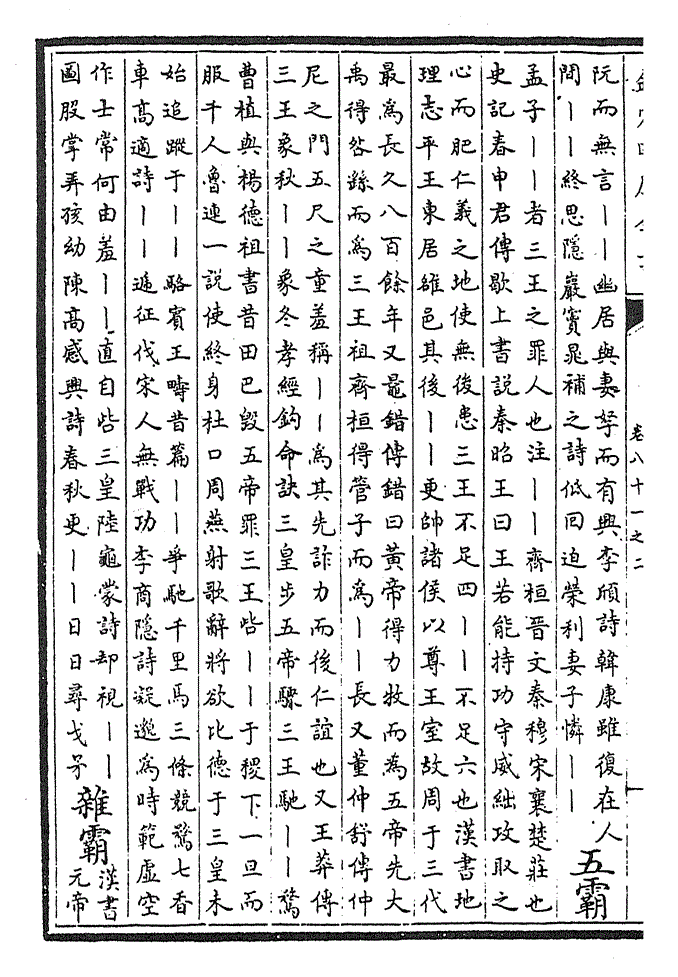 卷八十一之二
阮而無言||幽居與妻孥而有興李頎詩韓康雖復在人
間||終思隱巖竇晁補之詩低回迫榮利妻子憐||
五霸
孟子||者三王之罪人也注||齊桓晉文秦穆宋襄楚莊也
史記春申君傳歇上書說秦昭王曰王若能持功守威絀攻取之
心而肥仁義之地使無後患三王不足四||不足六也漢書地
理志平王東居雒邑其後||更帥諸侯以尊王室故周于三代
最為長久八百餘年又鼂錯傳錯曰黃帝得力牧而為五帝先大
禹得咎繇而為三王祖齊桓得管子而為||長又董仲舒傳仲
尼之門五尺之童羞稱||為其先詐力而後仁誼也又王莽傳
三王象秋||象冬孝經鈎命訣三皇步五帝驟三王馳||騖
曹植與楊德祖書昔田巴毀五帝罪三王呰||于稷下一旦而
服千人魯連一說使終身杜口周燕射歌辭將欲比德于三皇未
始追蹤于||駱賓王疇昔篇||爭馳千里馬三條競騖七香
車高適詩||遞征伐宋人無戰功李商隱詩凝邈為時範虛空
作士常何由羞||直自呰三皇陸龜蒙詩却視||
圖股掌弄孩幼陳高感興詩春秋更||日日尋戈矛
雜霸
漢書
元帝